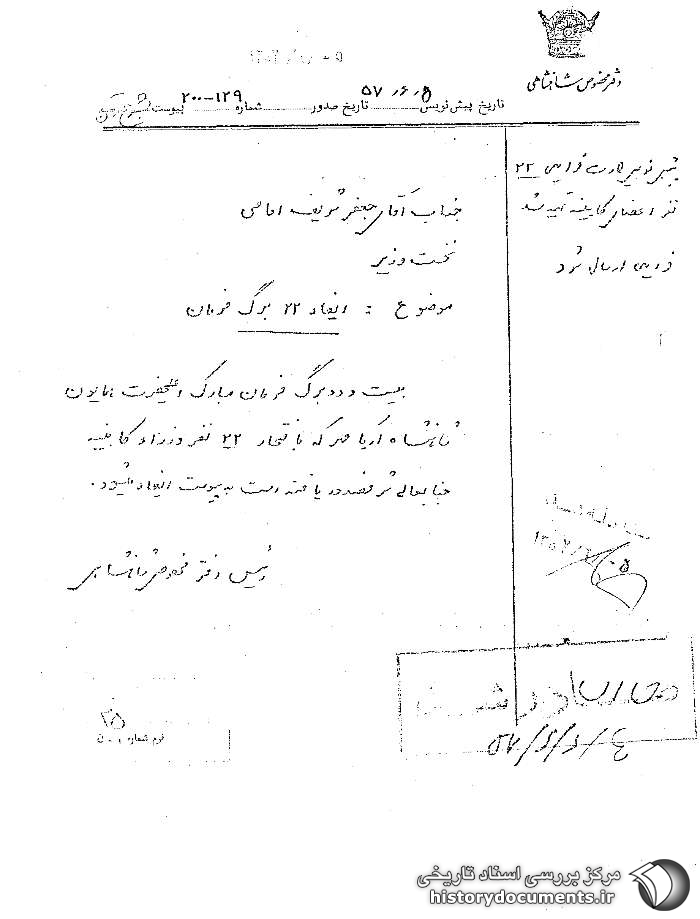 دفتر مخصوص شاهنشاهی
تاریخ پیش‌نویس ۵۷،۶،۵ تاریخ صدور شماره ۱۲۹-۲۰۰ پیوست
جناب آقای جعفر شریف امامی
نخست وزیر
موضوع : انفاد ۲۲ برگ فرمان
بیست و دو برگ فرمان مبارک اعلیحضرت همایون
شاهنشاه آریامهر که بافتخار ۲۲ نفر وزراء کابینه
جنابعالی شرفصدور یافته است به پیوست انفاد میشود.
رئیس دفتر مخصوص شاهنشاهی
۲۲
نفر اعضای کابینه تهیه شد
ارسال شود
صادر شد
۲۵
فرم شماره
مرکز بررسی اسناد تاریخی
historydocuments.ir